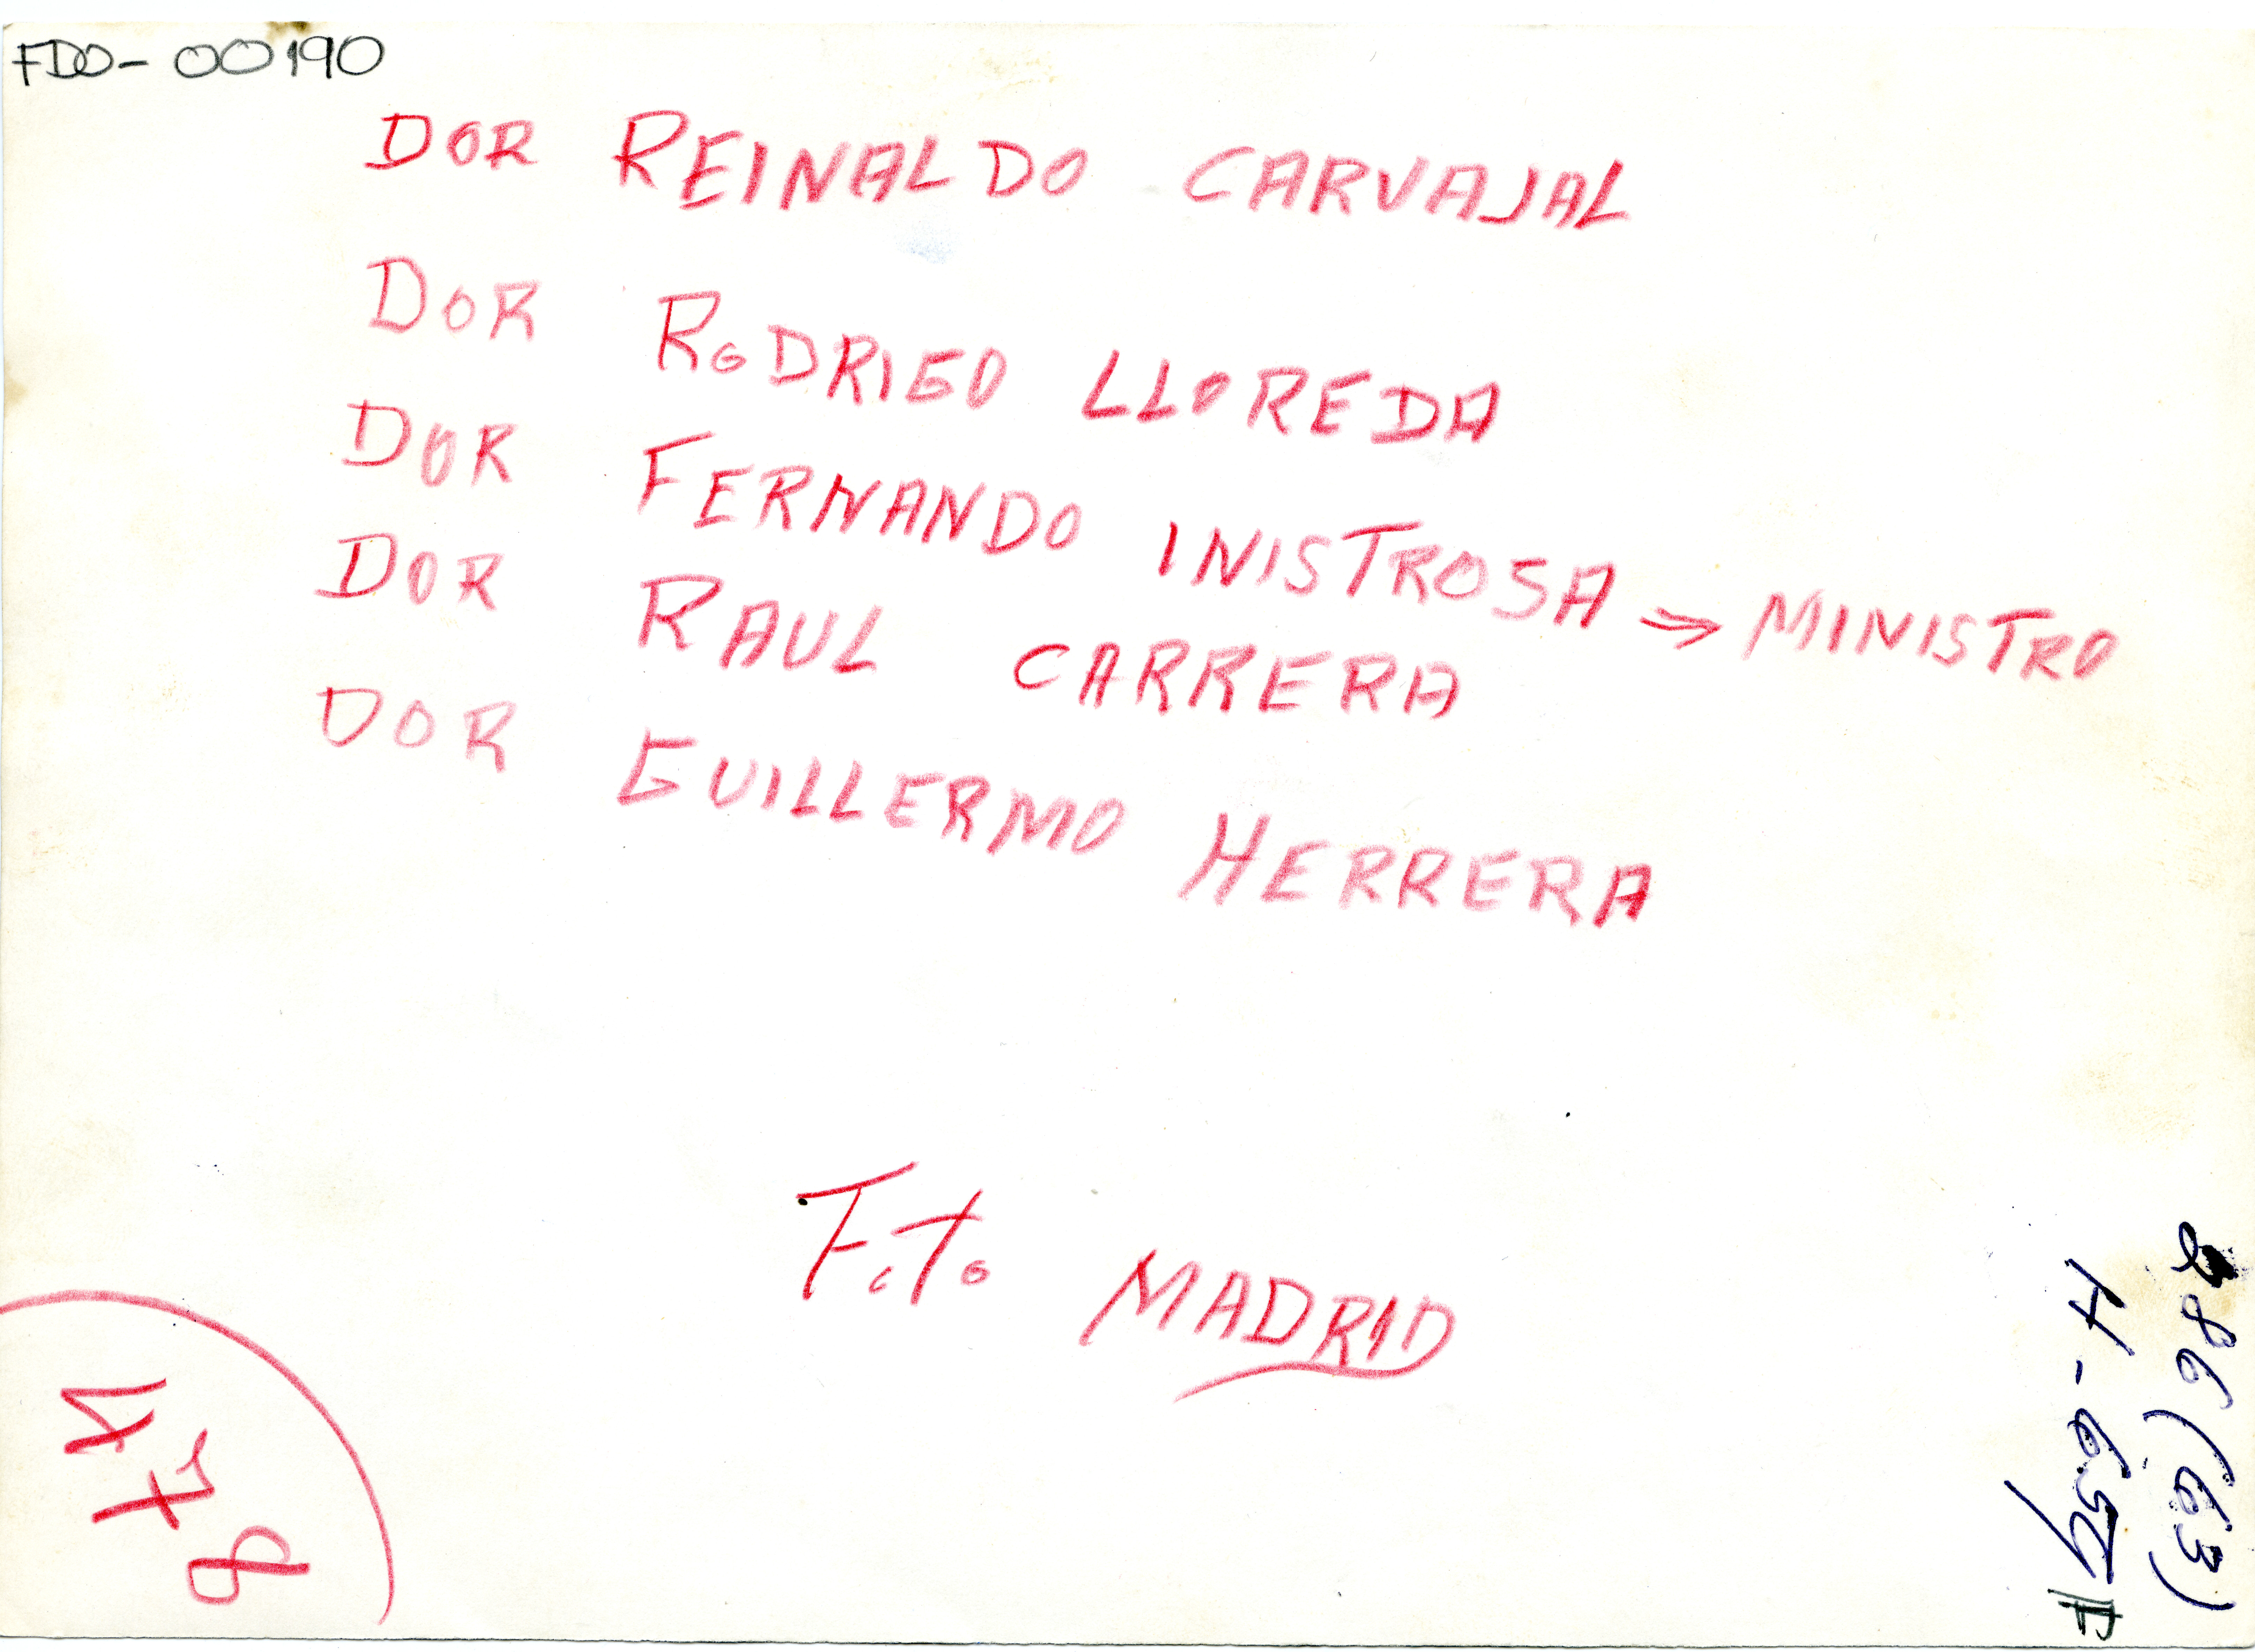 FDO-00190
DOR REINALDO CARVAJAL
DOR RODRIGO LLOREDA
DOR FERNANDO INISTROSA → MINISTRO
DOR RAUL CARRERA
DOR GUILLERMO HERRERA
Foto MADRID
286 (63)